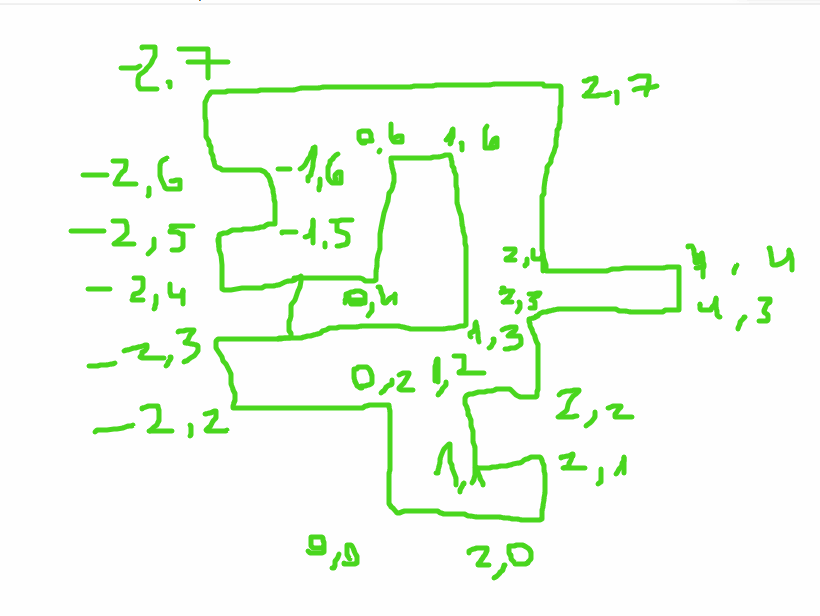 -2,7
2,7
0,6 1,6
-2,6 -1,6
-2,5 -1,5
2,4 4,4
-2,4 0,4 2,3 4,3
-2,3 1,3
0,2 1,2
-2,2 2,2
1,1 2,1
0,0 2,0